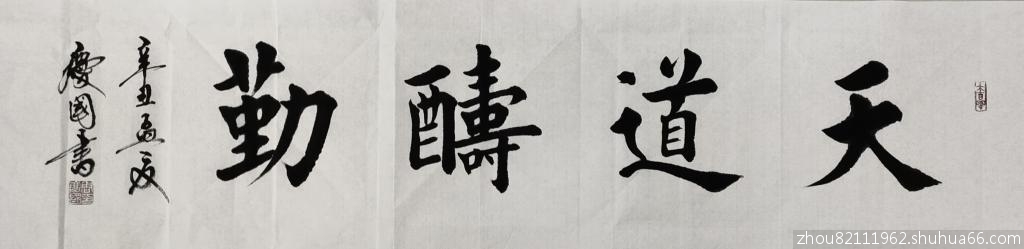 天道醻勤
辛丑孟夏
慶國書
zhou82111962.shuhua66.com